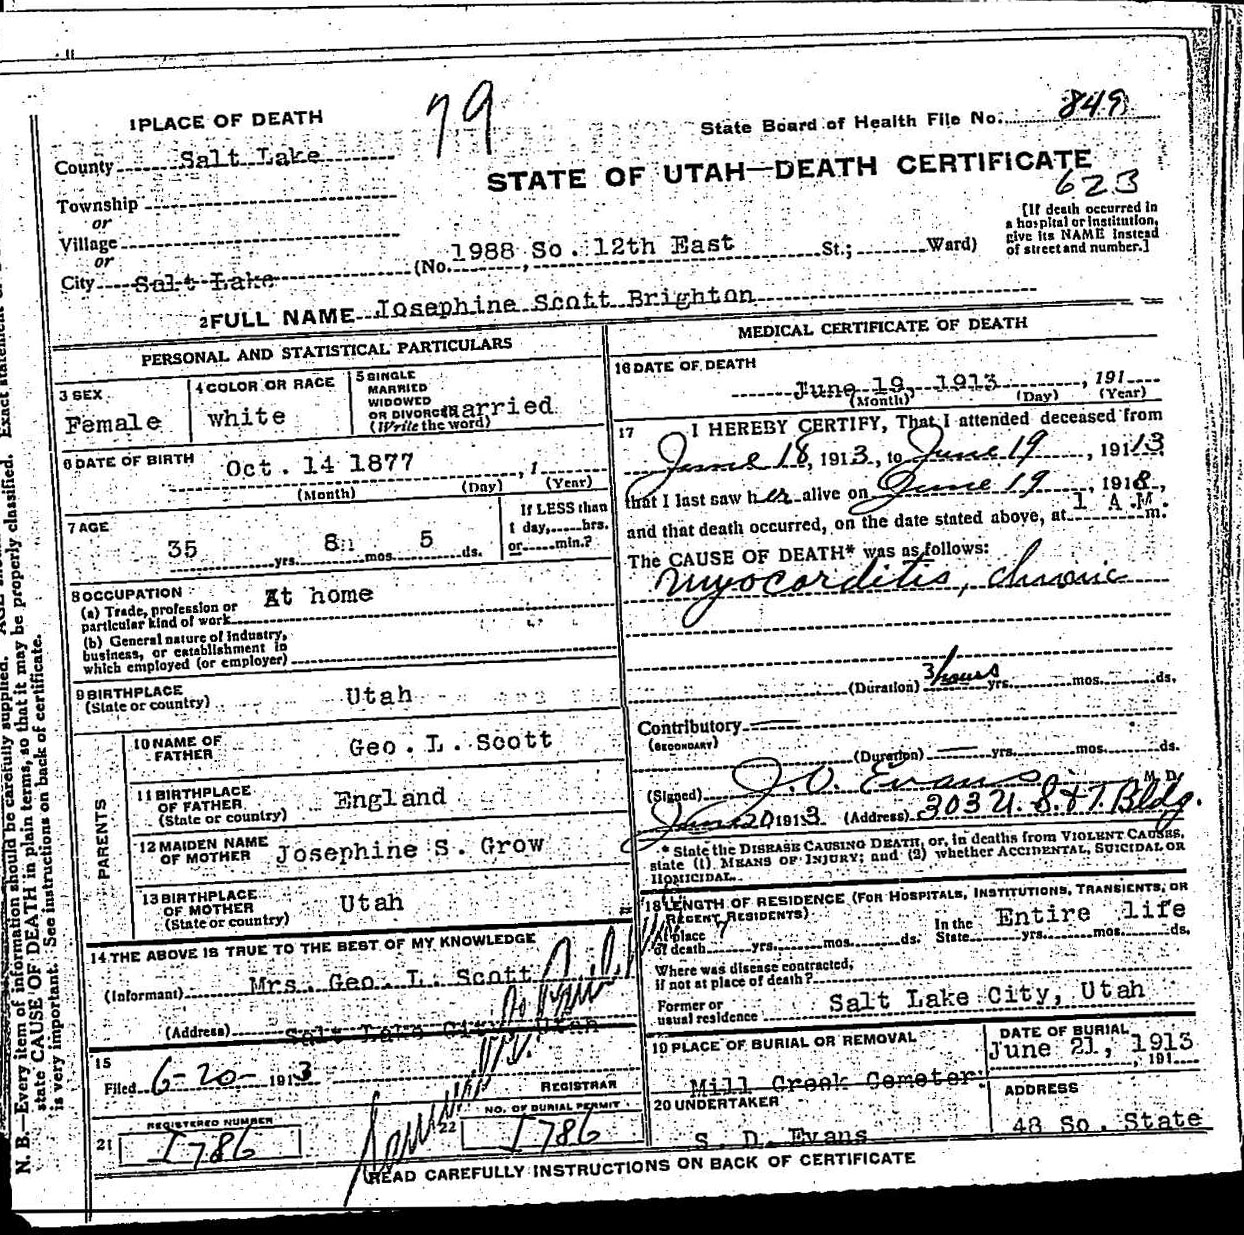 79
1 PLACE OF DEATH
State Board of Health File No. 849
County Salt Lake
STATE OF UTAH—DEATH CERTIFICATE
623
Township
or
Village
or
City Salt Lake
(No. 1988 So. 12th East St.; Ward)
[If death occurred in
a hospital or institution,
give its NAME instead
of street and number.]
2 FULL NAME Josephine Scott Brighton
PERSONAL AND STATISTICAL PARTICULARS
3 SEX
Female
4 COLOR OR RACE
white
5 SINGLE
MARRIED
WIDOWED
OR DIVORCED married
(Write the word)
6 DATE OF BIRTH
Oct. 14 1877 , 1
(Month) (Day) (Year)
7 AGE
35 yrs. 8 mos. 5 ds.
If LESS than
1 day, hrs.
or min.?
8 OCCUPATION At home
(a) Trade, profession or
particular kind of work
(b) General nature of industry,
business, or establishment in
which employed (or employer)
9 BIRTHPLACE
(State or country) Utah
PARENTS
10 NAME OF
FATHER Geo. L. Scott
11 BIRTHPLACE
OF FATHER
(State or country) England
12 MAIDEN NAME
OF MOTHER Josephine S. Grow
13 BIRTHPLACE
OF MOTHER
(State or country) Utah
14 THE ABOVE IS TRUE TO THE BEST OF MY KNOWLEDGE
(Informant) Mrs. Geo. L. Scott
(Address) Salt Lake City, Utah
15
Filed 6-20- 1913
REGISTRAR
21 REGISTERED NUMBER
I786
22 NO. OF BURIAL PERMIT
I786
MEDICAL CERTIFICATE OF DEATH
16 DATE OF DEATH
June 19, 1913 , 191
(Month) (Day) (Year)
17 I HEREBY CERTIFY, That I attended deceased from
June 18, 1913, to June 19, 19113,
that I last saw her alive on June 19, 1918,
and that death occurred, on the date stated above, at 1 A.M. m.
The CAUSE OF DEATH* was as follows:
Myocarditis, chronic
(Duration) 3 hours yrs. mos. ds.
Contributory
(SECONDARY)
(Duration) yrs. mos. ds.
(Signed) J. O. Evans M. D.
June 20 1913 (Address) 303 U. S. & T. Bldg.
* State the DISEASE CAUSING DEATH, or, in deaths from VIOLENT CAUSES,
state (1) MEANS OF INJURY; and (2) whether ACCIDENTAL, SUICIDAL OR
HOMICIDAL.
18 LENGTH OF RESIDENCE (FOR HOSPITALS, INSTITUTIONS, TRANSIENTS, OR
RECENT RESIDENTS)
At place
of death yrs. mos. ds.
In the
State Entire life yrs. mos. ds.
Where was disease contracted,
if not at place of death?
Former or
usual residence Salt Lake City, Utah
19 PLACE OF BURIAL OR REMOVAL
Mill Creek Cemeter
DATE OF BURIAL
June 21, 1913
, 191
20 UNDERTAKER
S. D. Evans
ADDRESS
48 So. State
READ CAREFULLY INSTRUCTIONS ON BACK OF CERTIFICATE
N. B.—Every item of information should be carefully supplied. Exact statement
state CAUSE OF DEATH in plain terms, so that it may be properly classified.
is very important. See instructions on back of certificate.